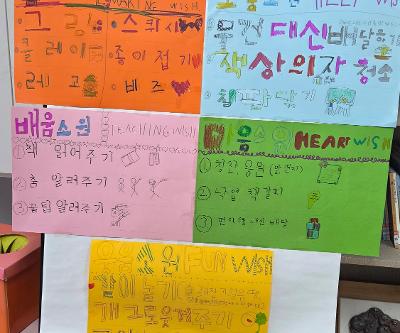 MAKING WISH
그림 스퀴시
클레이 종이접기
레고 비즈
HELP WISH
대신배달하기
책상의자 청소
칠판 닦기
배움소원 LEARNING WISH
① 책 읽어주기
② 춤 알려주기
③ 꿀팁 알려주기
마음소원 HEART WISH
① 칭찬, 응원
② 낙엽 책갈피
③ 편지
FUN WISH
같이놀기
개그로웃겨주기